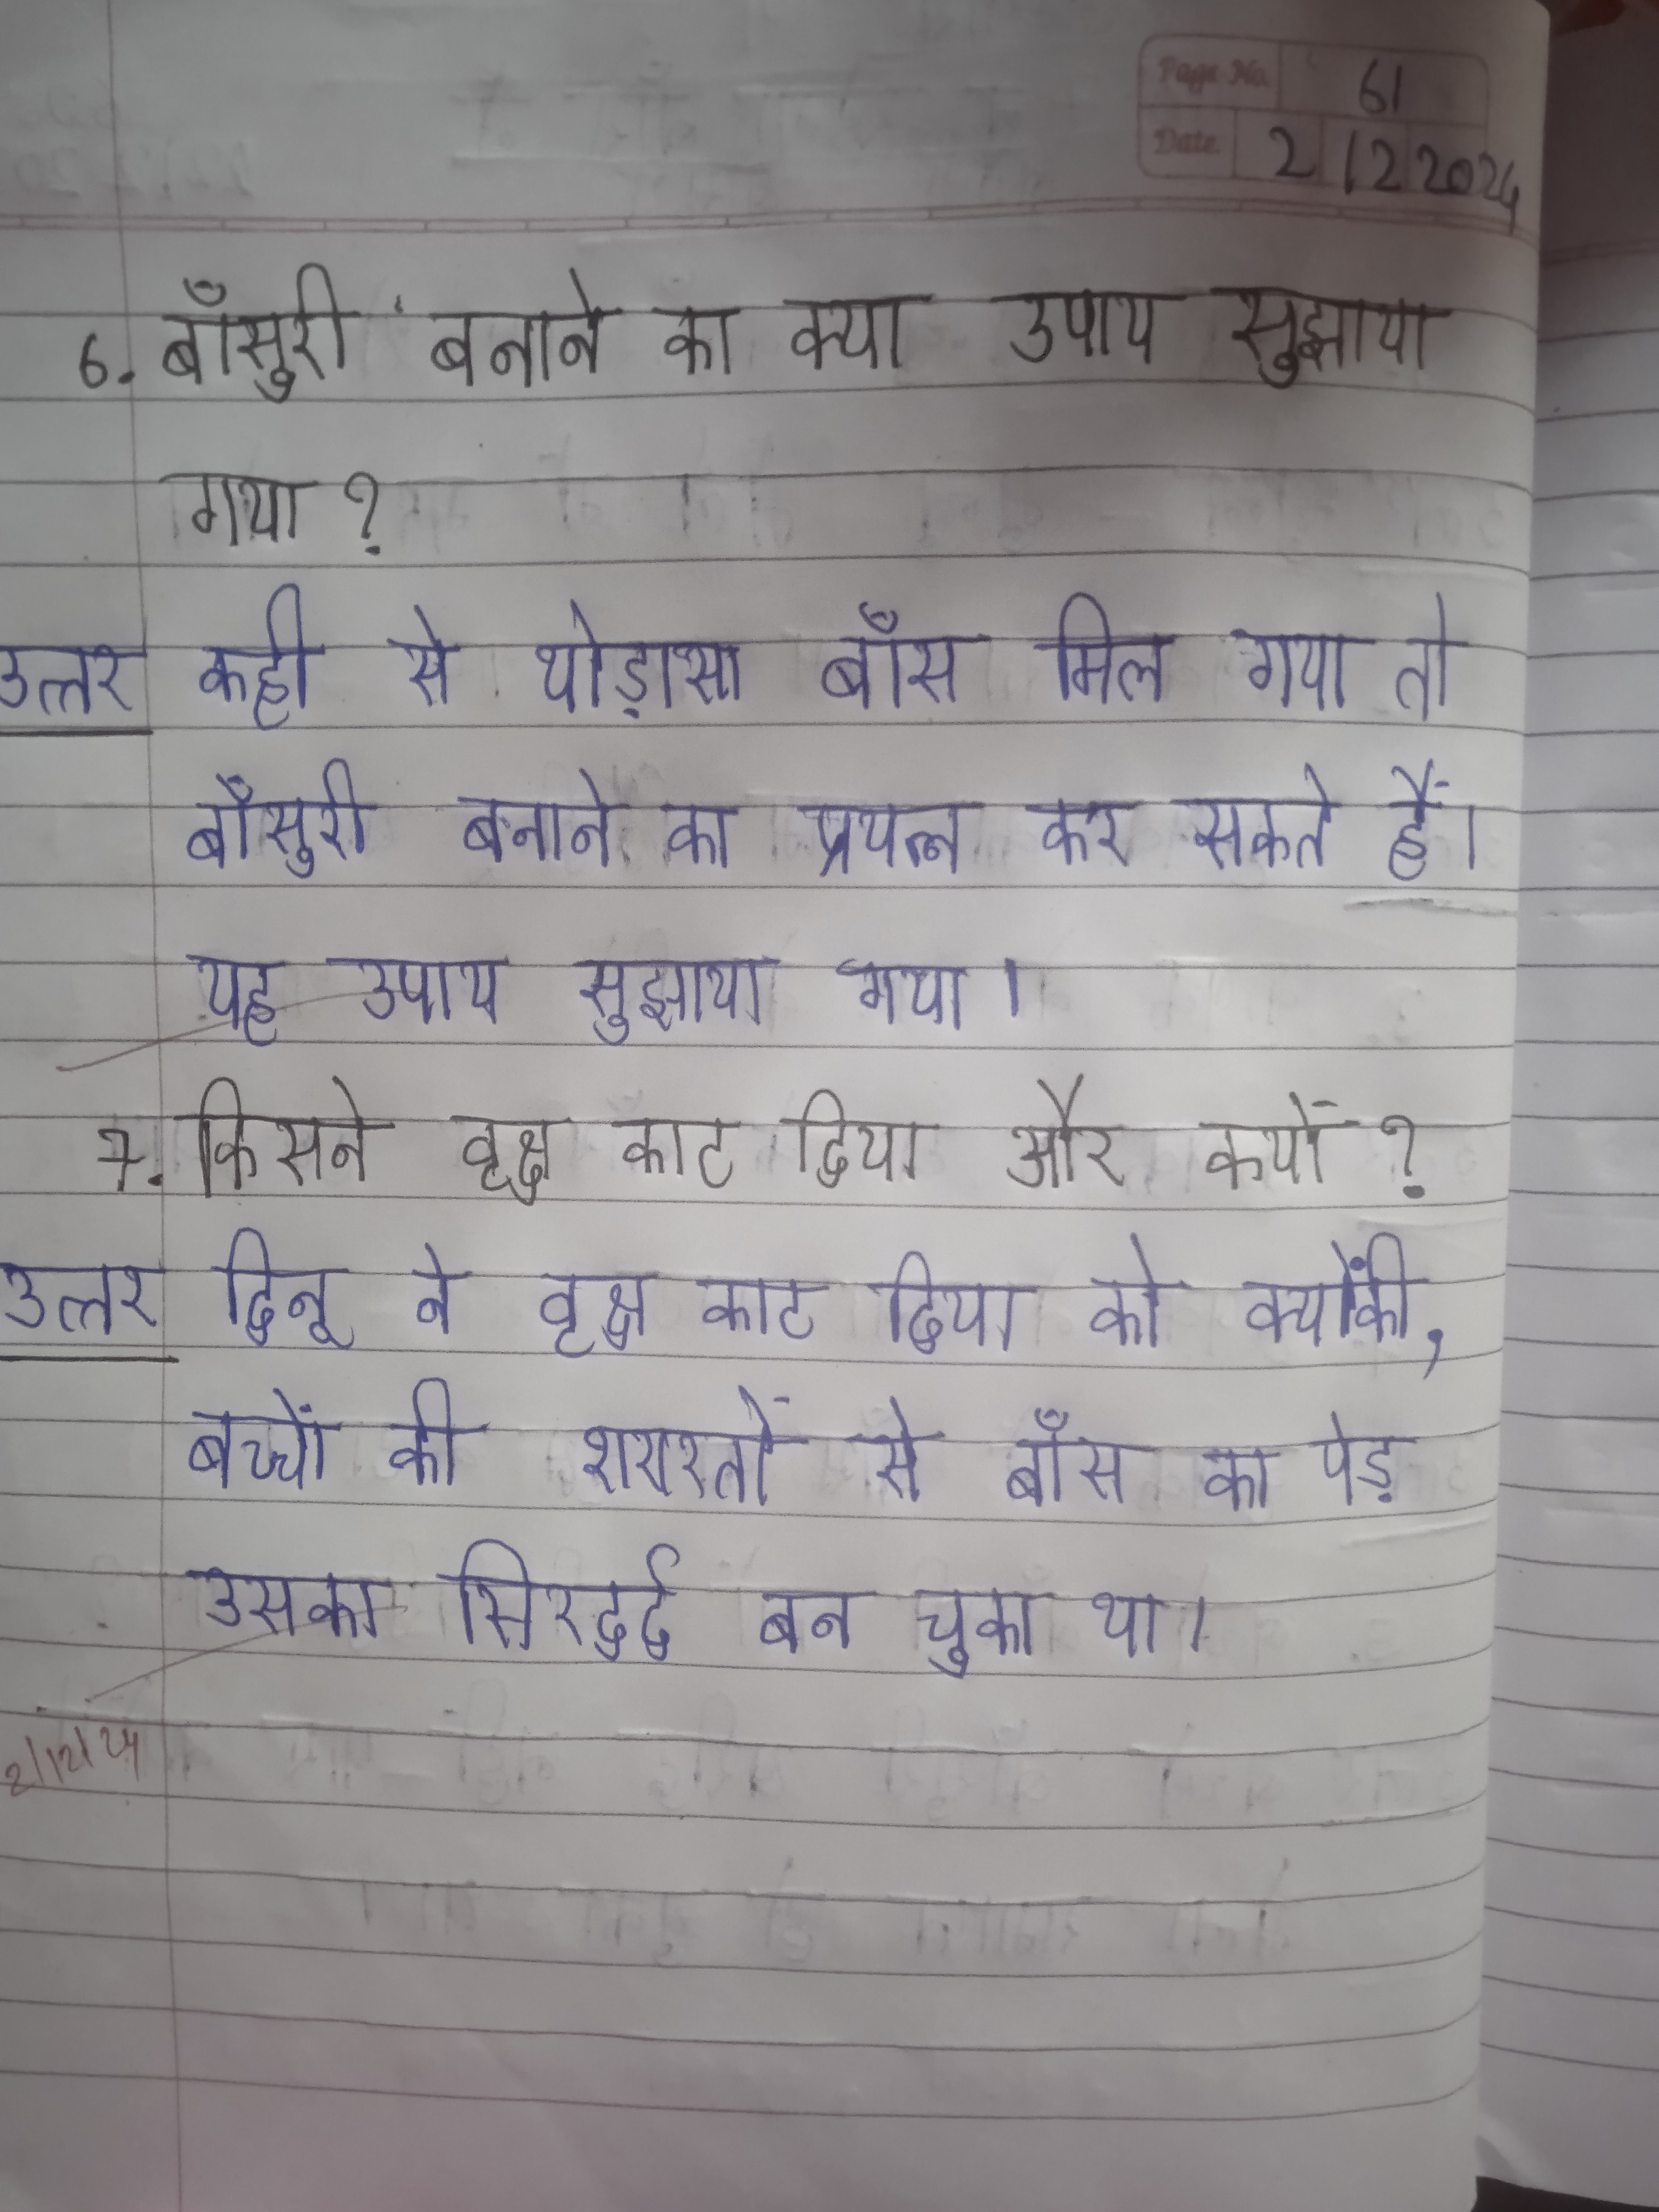 Page No. 61
Date 2 12 2024
6. बाँसुरी बनाने का क्या उपाय सुझाया
गया ?
उत्तर कही से थोड़ासा बाँस मिल गया तो
बाँसुरी बनाने का प्रयत्न कर सकते हैं।
यह उपाय सुझाया गया।
7. किसने वृक्ष काट दिया और क्यों ?
उत्तर दिनू ने वृक्ष काट दिया को क्योंकी,
बच्चों की शरारतों से बाँस का पेड़
उसका सिरदर्द बन चुका था।
2/12/24